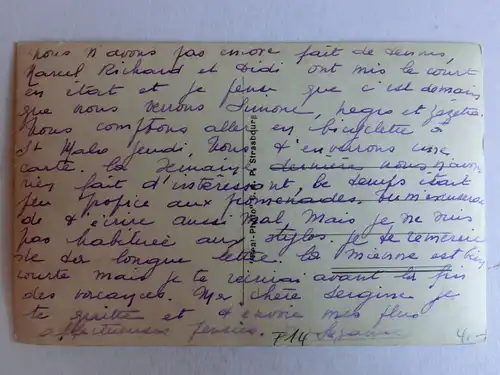 Nous n'avons pas encore fait de tennis,
Marcel Richard et Didi ont mis le court
en état et je pense que c'est demain
que nous verrons Simone,
Nous comptons aller en bicyclette à
St Malo jeudi, nous t'enverrons une
carte. La semaine dernière nous n'avons
rien fait d'intéressant, le temps était
peu propice aux promenades. Tu m'excuseras
de t'écrire aussi mal, mais je ne suis
pas habituée aux stylos. Je te remercie
de ta longue lettre. La mienne est bien
courte mais je te verrai avant la fin
des vacances. Ma chère Sergine je
te quitte et t'envoie mes plus
affectueuses pensées. Suzanne
Real-Photo Pl. Strasbourg
F14
40.-